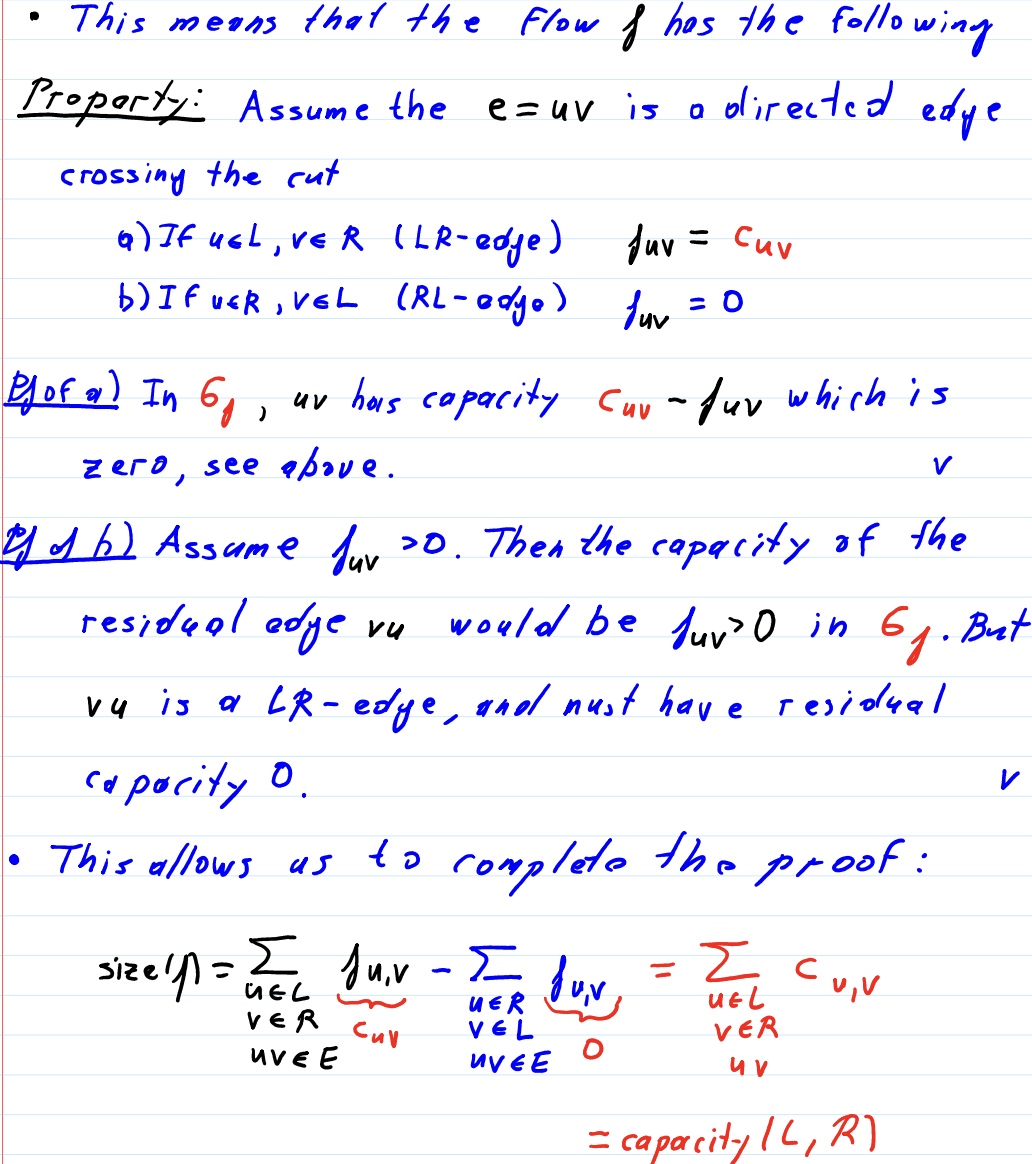 • This means that the Flow f has the following
Property: Assume the e = uv is a directed edge
crossing the cut
a) If u∈L, v∈R (LR-edge) f_uv = c_uv
b) If u∈R, v∈L (RL-edge) f_uv = 0
Pf of a) In G_f, uv has capacity c_uv - f_uv which is
zero, see above. v
Pf of b) Assume f_uv >0. Then the capacity of the
residual edge vu would be f_uv>0 in G_f. But
vu is a LR-edge, and must have residual
capacity 0. v
• This allows us to complete the proof:
size(f) = ∑ f_u,v - ∑ f_u,v = ∑ c_u,v
u∈L u∈R u∈L
v∈R c_uv v∈L 0 v∈R
uv∈E uv∈E uv
= capacity(L, R)